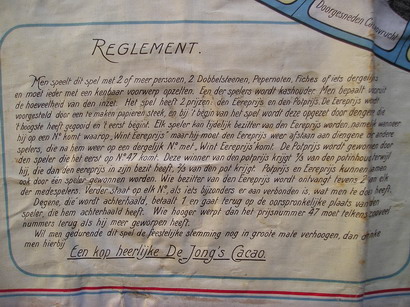 Doorgesneden Cacaovrucht
REGLEMENT.
Men speelt dit spel met 2 of meer personen, 2 Dobbelsteenen, Pepernoten, Fiches of iets dergelijks
en moet ieder met een kenbaar voorwerp opzetten. Een der spelers wordt kashouder. Men bepaalt vooruit
de hoeveelheid van den inzet. Het spel heeft 2 prijzen: den Eereprijs en den Potprijs. De Eereprijs wordt
voorgesteld door een te maken papieren steek, en bij 't begin van het spel wordt deze opgezet door diengene die
't hoogste heeft gegooid en 't eerst begint. Elk speler kan tijdelijk bezitter van den Eereprijs worden, namelijk wanneer
hij op een No komt waarop "Wint Eereprijs" maar hij moet den Eereprijs weer afstaan aan diengene der andere
spelers, die na hem weer op een dergelijk No met "Wint Eereprijs" komt. De Potprijs wordt gewonnen door
den speler die het eerst op No 47 komt. Deze winner van den potprijs krijgt 1/3 van den potinhoud, terwijl
hij, die dan den eereprijs in zijn bezit heeft, 1/3 van den pot krijgt. Potprijs en Eereprijs kunnen samen
ook door één speler gewonnen worden. Wie bezitter van den Eereprijs wordt ontvangt tevens 2 van elk
der medespelers. Verder staat op elk No, als iets bijzonders er aan verbonden is, wat men te doen heeft.
Degene, die wordt achterhaald, betaalt 1 en gaat terug op de oorspronkelijke plaats van den
speler, die hem achterhaald heeft. Wie hooger werpt dan het prijsnummer 47 moet telkens zooveel
nummers terug als hij meer geworpen heeft.
Wil men gedurende dit spel de feestelijke stemming nog in groote mate verhoogen, dan drinke
men hierbij
Een kop heerlijke De Jong's Cacao.